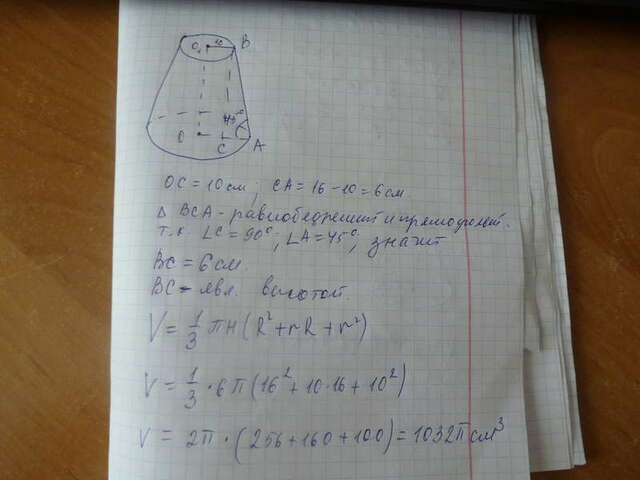 O₁ 10 B
45°
O C A
OC = 10 см; CA = 16 - 10 = 6 см.
Δ BCA - равнобедренный и прямоугол.
т.к ∠C = 90°, ∠A = 45°, значит
BC = 6 см.
BC - явл. высотой.
V = 1/3 πH (R² + rR + r²)
V = 1/3 · 6π (16² + 10·16 + 10²)
V = 2π · (256 + 160 + 100) = 1032π см³